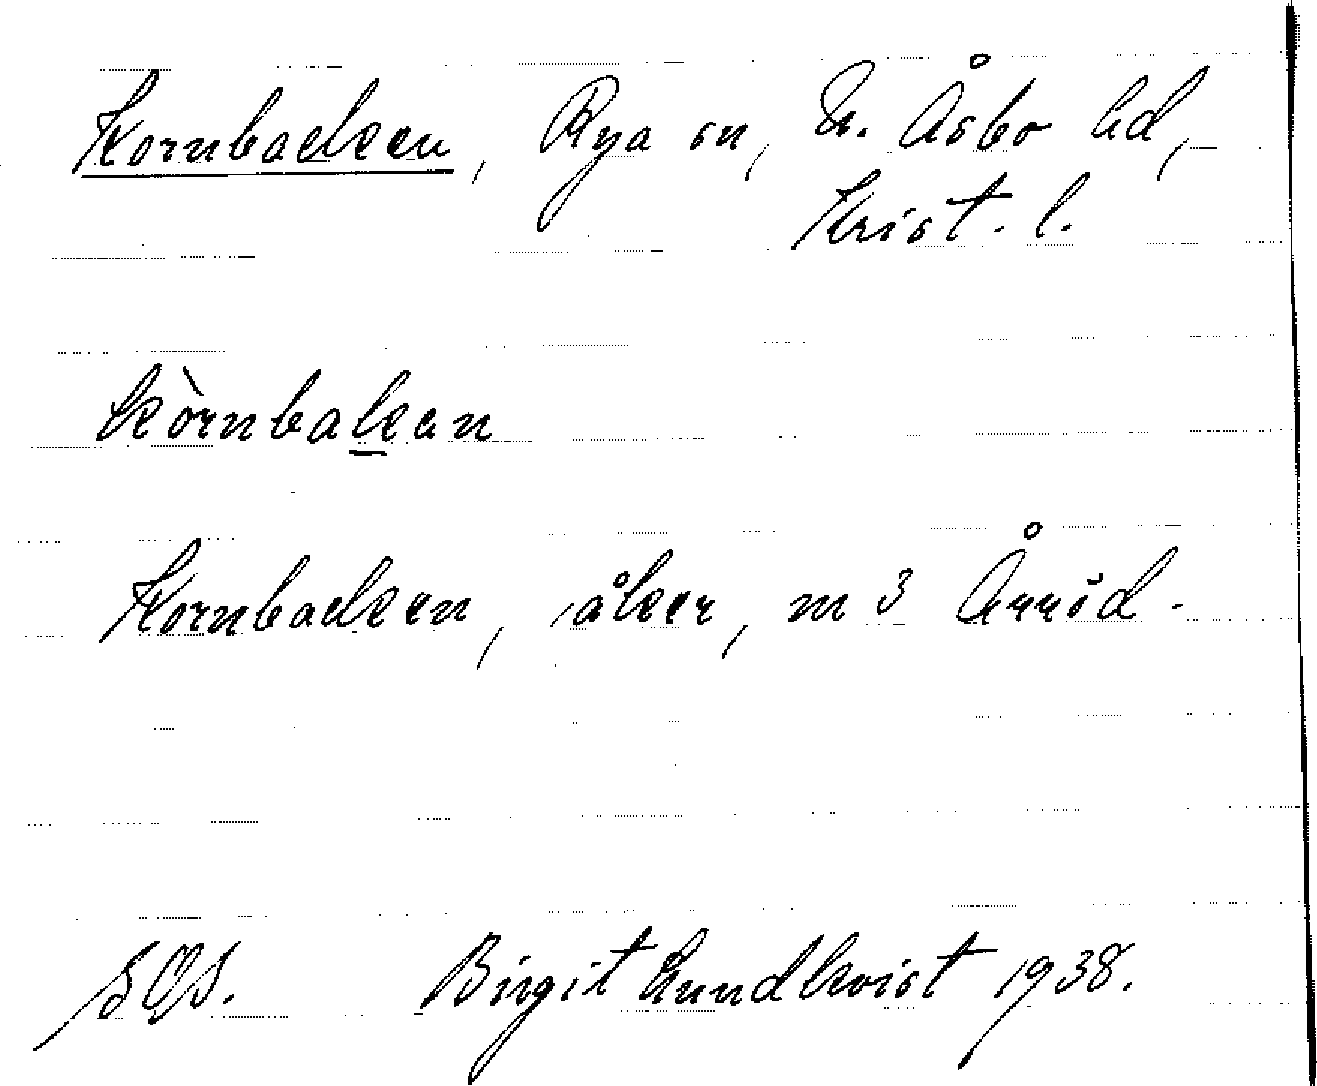 Kornbacken, Rya sn, N. Åsbo hd,
Krist. l.
kòrnbakan
Kornbacken, åker, nr 3 Årröd.
SOS. Birgit Lundkvist 1938.